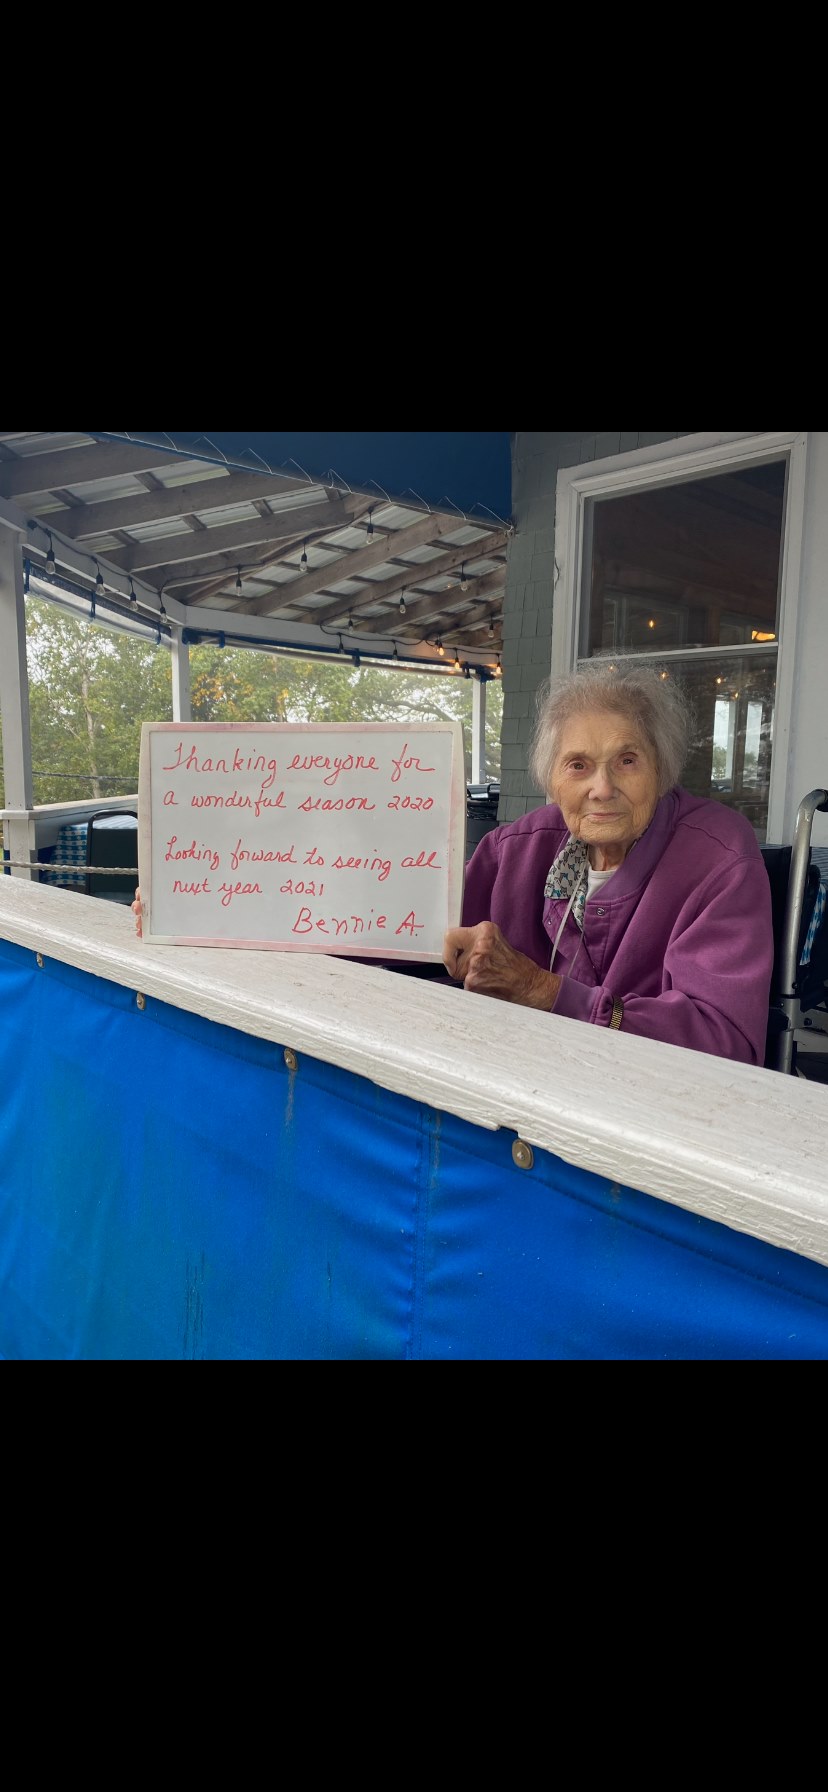 Thanking everyone for
a wonderful season 2020
Looking forward to seeing all
next year 2021
Bennie A.